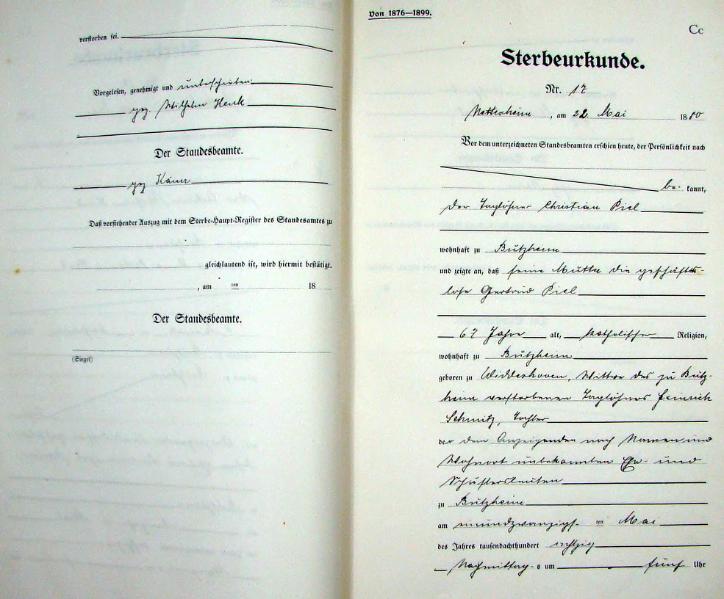 verstorben sei.
Vorgelesen, genehmigt und unterschrieben
gez. Wilhelm Henk
Der Standesbeamte.
gez
Daß vorstehender Auszug mit dem Sterbe-Haupt-Register des Standesamtes zu
gleichlautend ist, wird hiermit bestätigt.
, am ten 18
Der Standesbeamte.
(Siegel)
Von 1876—1899.
Cc
Sterbeurkunde.
Nr. 17
Nettesheim, am 22. Mai 1880
Vor dem unterzeichneten Standesbeamten erschien heute, der Persönlichkeit nach
be- kannt,
der Taglöhner Christian Piel
wohnhaft zu Butzheim
und zeigte an, daß seine Mutter die geschäfts-
lose Gertrud Piel
67 Jahre alt, katholischer Religion,
wohnhaft zu Butzheim
geboren zu Widdeshoven, Wittwe des zu Butz-
heim verstorbenen Taglöhners Heinrich
Schmitz, Tochter
der dem Anzeigenden nach Namen und
Wohnort unbekannten Ehe- und
zu Butzheim
am neunundzwanzigs- ten Mai
des Jahres tausendachthundert achtzig
Nachmittags um fünf Uhr